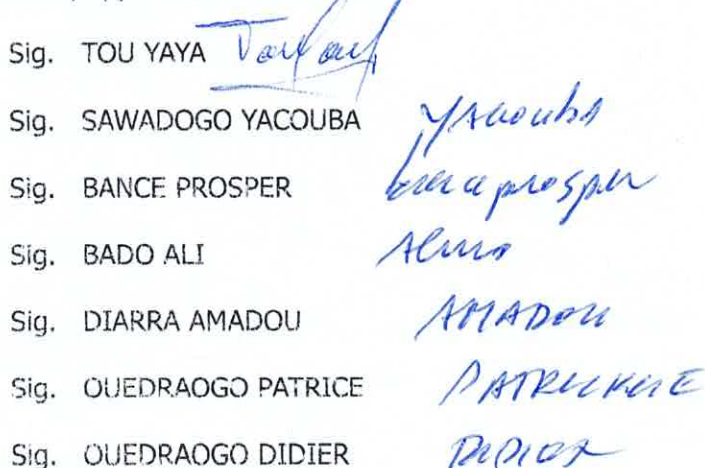 Sig. TOU YAYA
Sig. SAWADOGO YACOUBA Yacouba
Sig. BANCE PROSPER prosper
Sig. BADO ALI
Sig. DIARRA AMADOU AMADOU
Sig. OUEDRAOGO PATRICE
Sig. OUEDRAOGO DIDIER